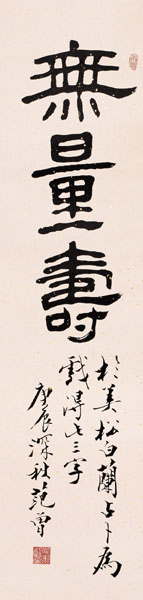 無量壽
於美松白蘭占卜為
戲得此三字
庚辰深秋 范曾